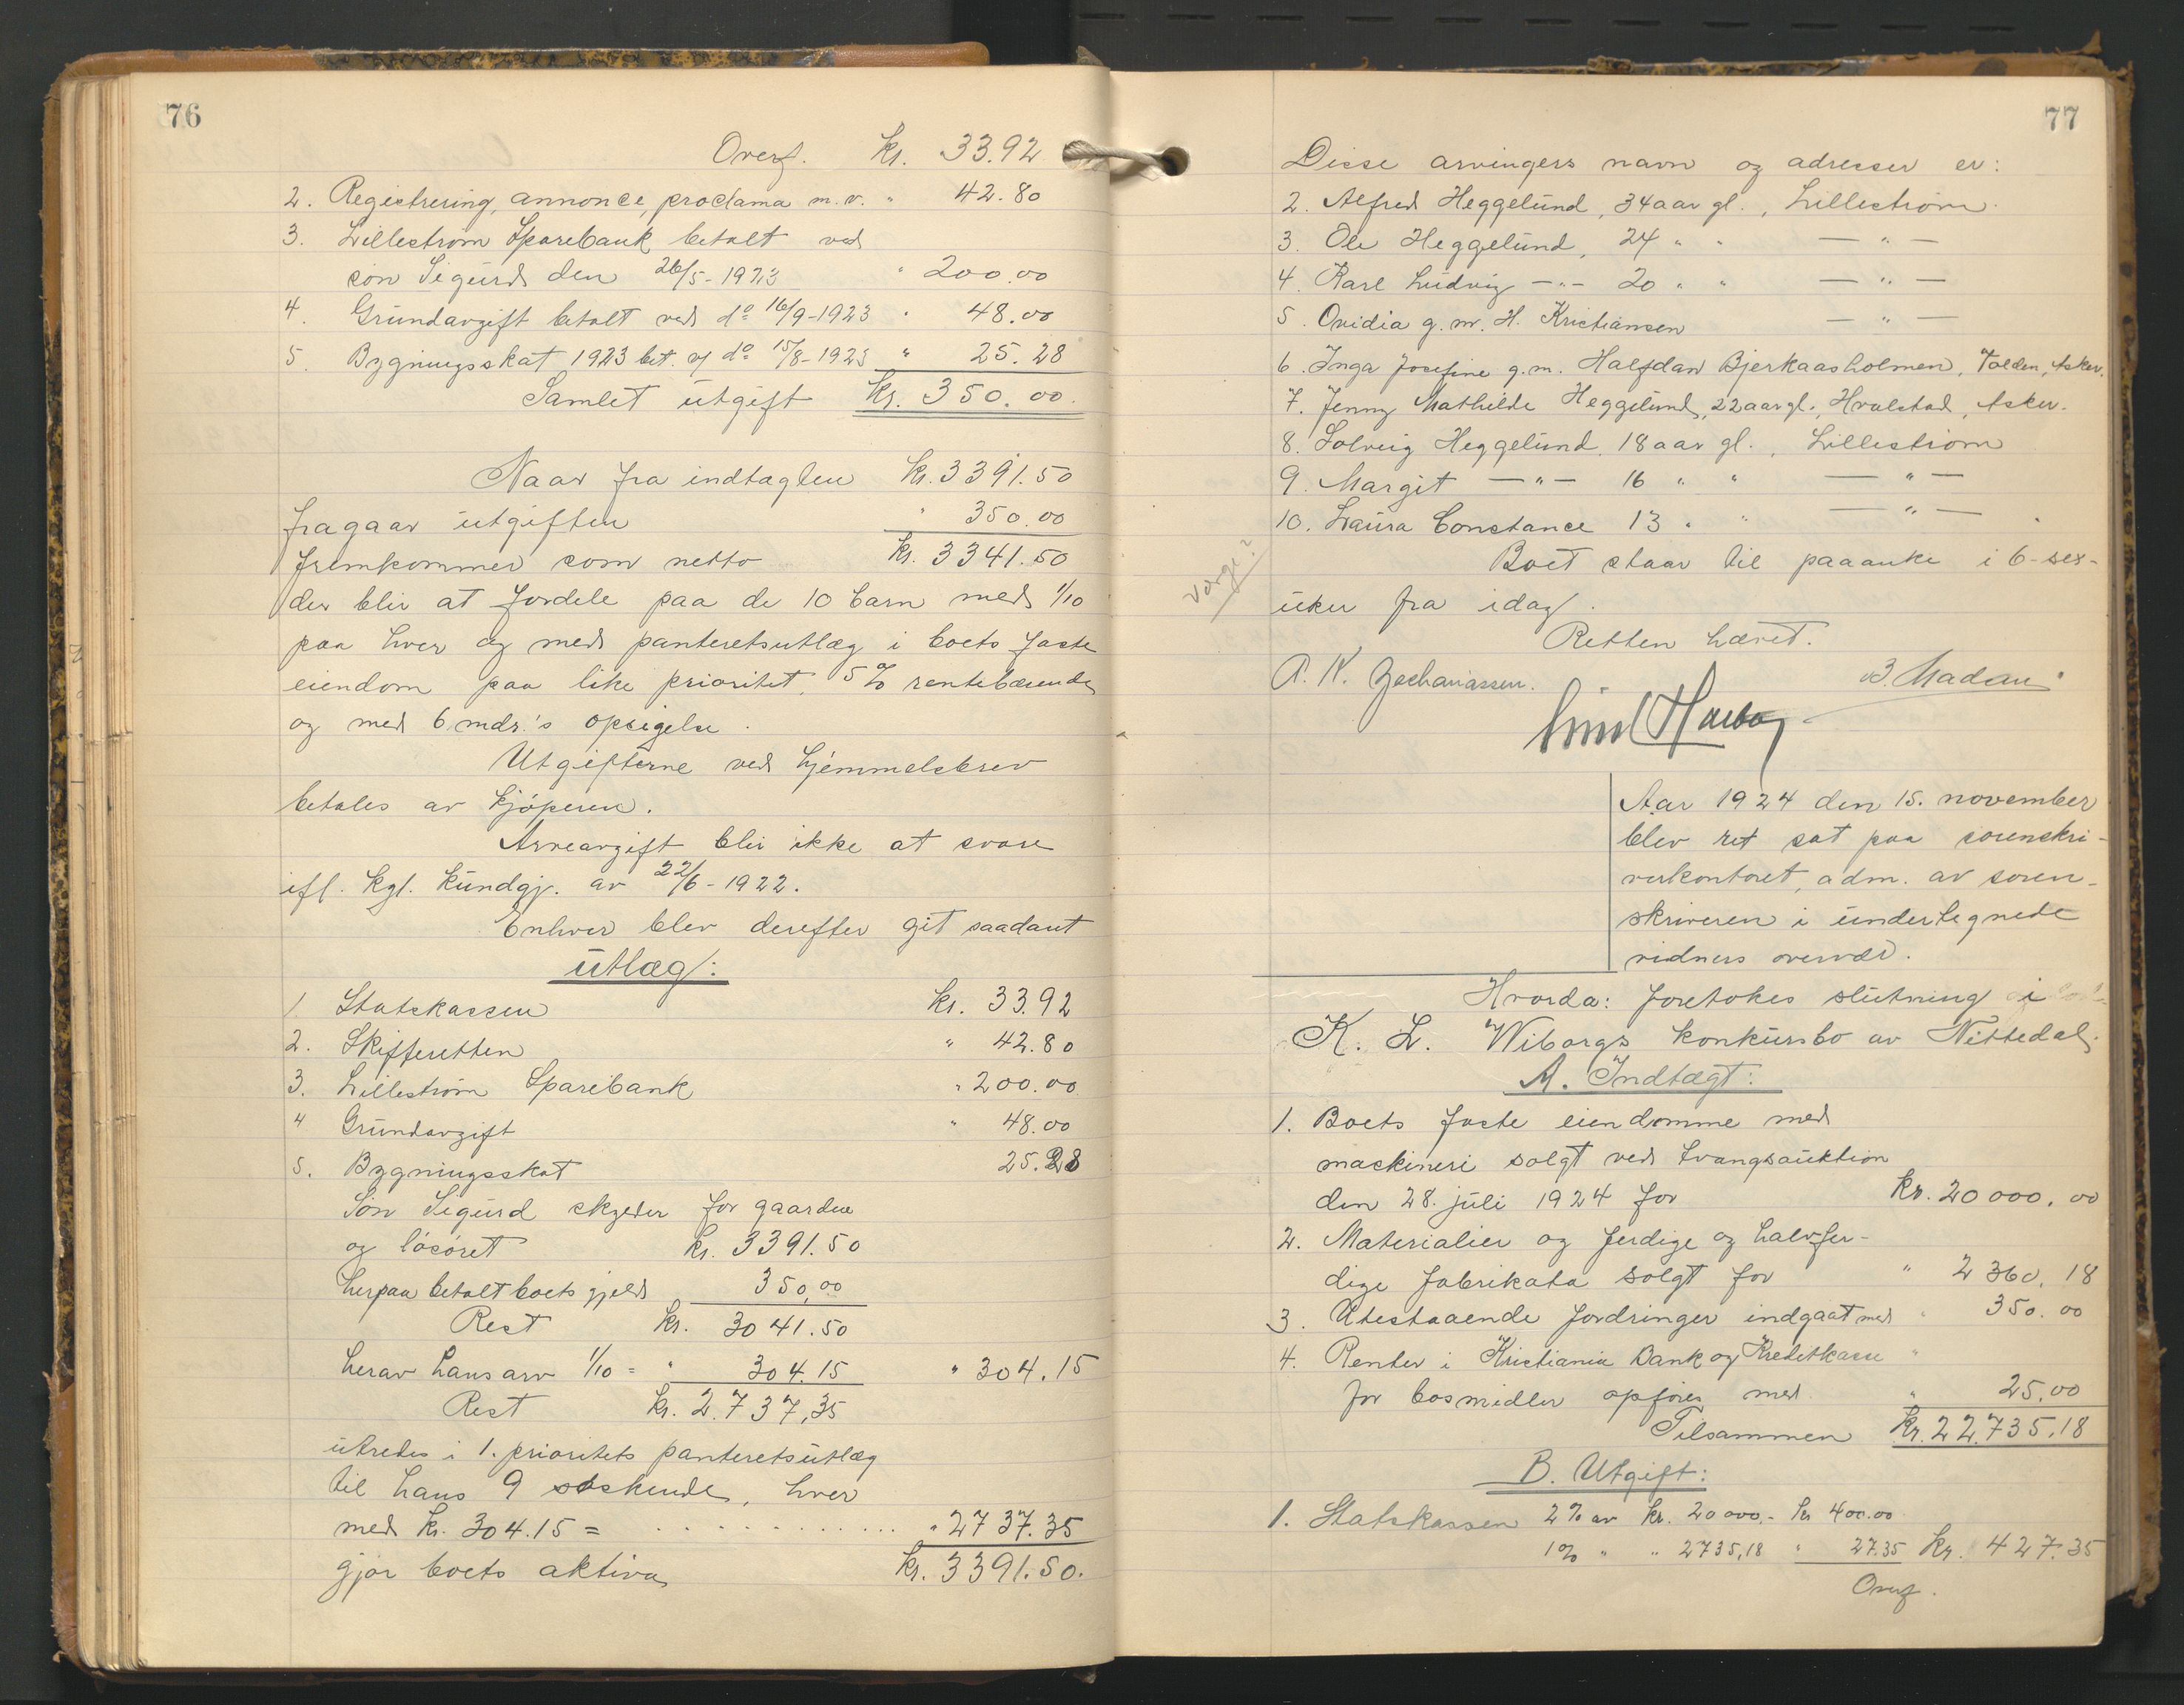 76
Overf. kr. 33.92
2. Registrering, annonce, proclama m.v. " 42.80
3. Lillestrøm Sparebank betalt ved
søn Sigurd den 26/5-1923 " 200.00
4. Grundavgift betalt ved do 16/9-1923 " 48.00
5. Bygningsskat 1923 bet. v/ do 15/8-1923 " 25.28
Samlet utgift kr. 350.00.
Naar fra indtægten kr. 3391.50
fragaar utgiften " 350.00
fremkommer som netto kr. 3341.50
der blir at fordele paa de 10 barn med 1/10
paa hver og med panteretsutlæg i boets faste
eiendom paa like prioritet, 5% rentebærende
og med 6 mdr.'s opsigelse.
Utgifterne ved hjemmelsbrev
betales av kjøperen.
Arveavgift blir ikke at svare
ifl. kgl. kundgj. av 22/6-1922.
Enhver blev derefter git saadant
utlæg:
1. Statskassen kr. 33.92
2. Skifteretten " 42.80
3. Lillestrøm Sparebank " 200.00
4 Grundavgift " 48.00
5. Bygningsskat 25.28
Søn Sigurd skylder for gaarden
og løsøret kr. 3391.50
herpaa betalt boets gjeld 350,00
Rest kr. 3041.50
herav hans arv 1/10 = " 304.15 " 304.15
Rest kr. 2.737,35
utredes i 1. prioritets panteretsutlæg
til hans 9 søskende, hver
med kr. 304.15 = . . . . . . . . . . " 2737.35
gjør boets aktiva kr. 3391.50.
77
Disse arvingers navn og adresser er:
2. Alfred Heggelund, 34 aar gl., Lillestrøm.
3. Ole Heggelund, 24 " " — " —
4. Karl Ludvig — " — 20 " " — " —
5. Ovidia g. m. H. Kristiansen — " —
6. Inga Josefine g.m. Halfdan Bjerkaasholmen, Tolden, Asker.
7. Jenny Mathilde Heggelund, 22 aar gl., Hvalstad, Asker.
8. Solveig Heggelund, 18 aar gl., Lillestrøm
9. Margit — " — 16 " " — " —
10. Laura Constance 13 " " — " —
Boet staar til paaanke i 6-sex-
Verge?
uker fra idag.
Retten hævet.
A. K. Zachariassen. B. Madau
Emil Harboy
Aar 1924 den 15. november
blev ret sat paa sorenskri-
verkontoret, adm. av soren-
skriveren i undertegnede
vidners overvær.
Hvorda: foretokes slutning i
K. L. Wiborgs konkursbo av Nittedal.
A. Indtægt:
1. Boets faste eiendomme med
maskineri solgt ved tvangsauktion
den 28. juli 1924 for kr. 20 000.00
2. Materialier og ferdige og halvfer-
dige fabrikata solgt for " 2 360,18
3. Utestaaende fordringer indgaat med " 350.00
4. Renter i Kristiania Bank og Kreditkasse "
for bosmidler opføres med " 25,00
Tilsammen kr. 22.735,18
B. Utgift:
1. Statskassen 2% av kr. 20 000,- kr 400.00
1% " " 2735,18 " 27.35 kr. 427.35
Overf.